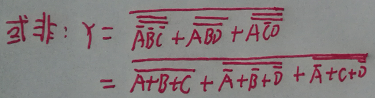 或非: Y = $\overline{\overline{\overline{\overline{A}\,\overline{B}\,\overline{C}}} + \overline{\overline{ABD}} + \overline{\overline{A\overline{C}D}}}$
= $\overline{\overline{A+B+C} + \overline{\overline{A}+\overline{B}+\overline{D}} + \overline{\overline{A}+C+\overline{D}}}$